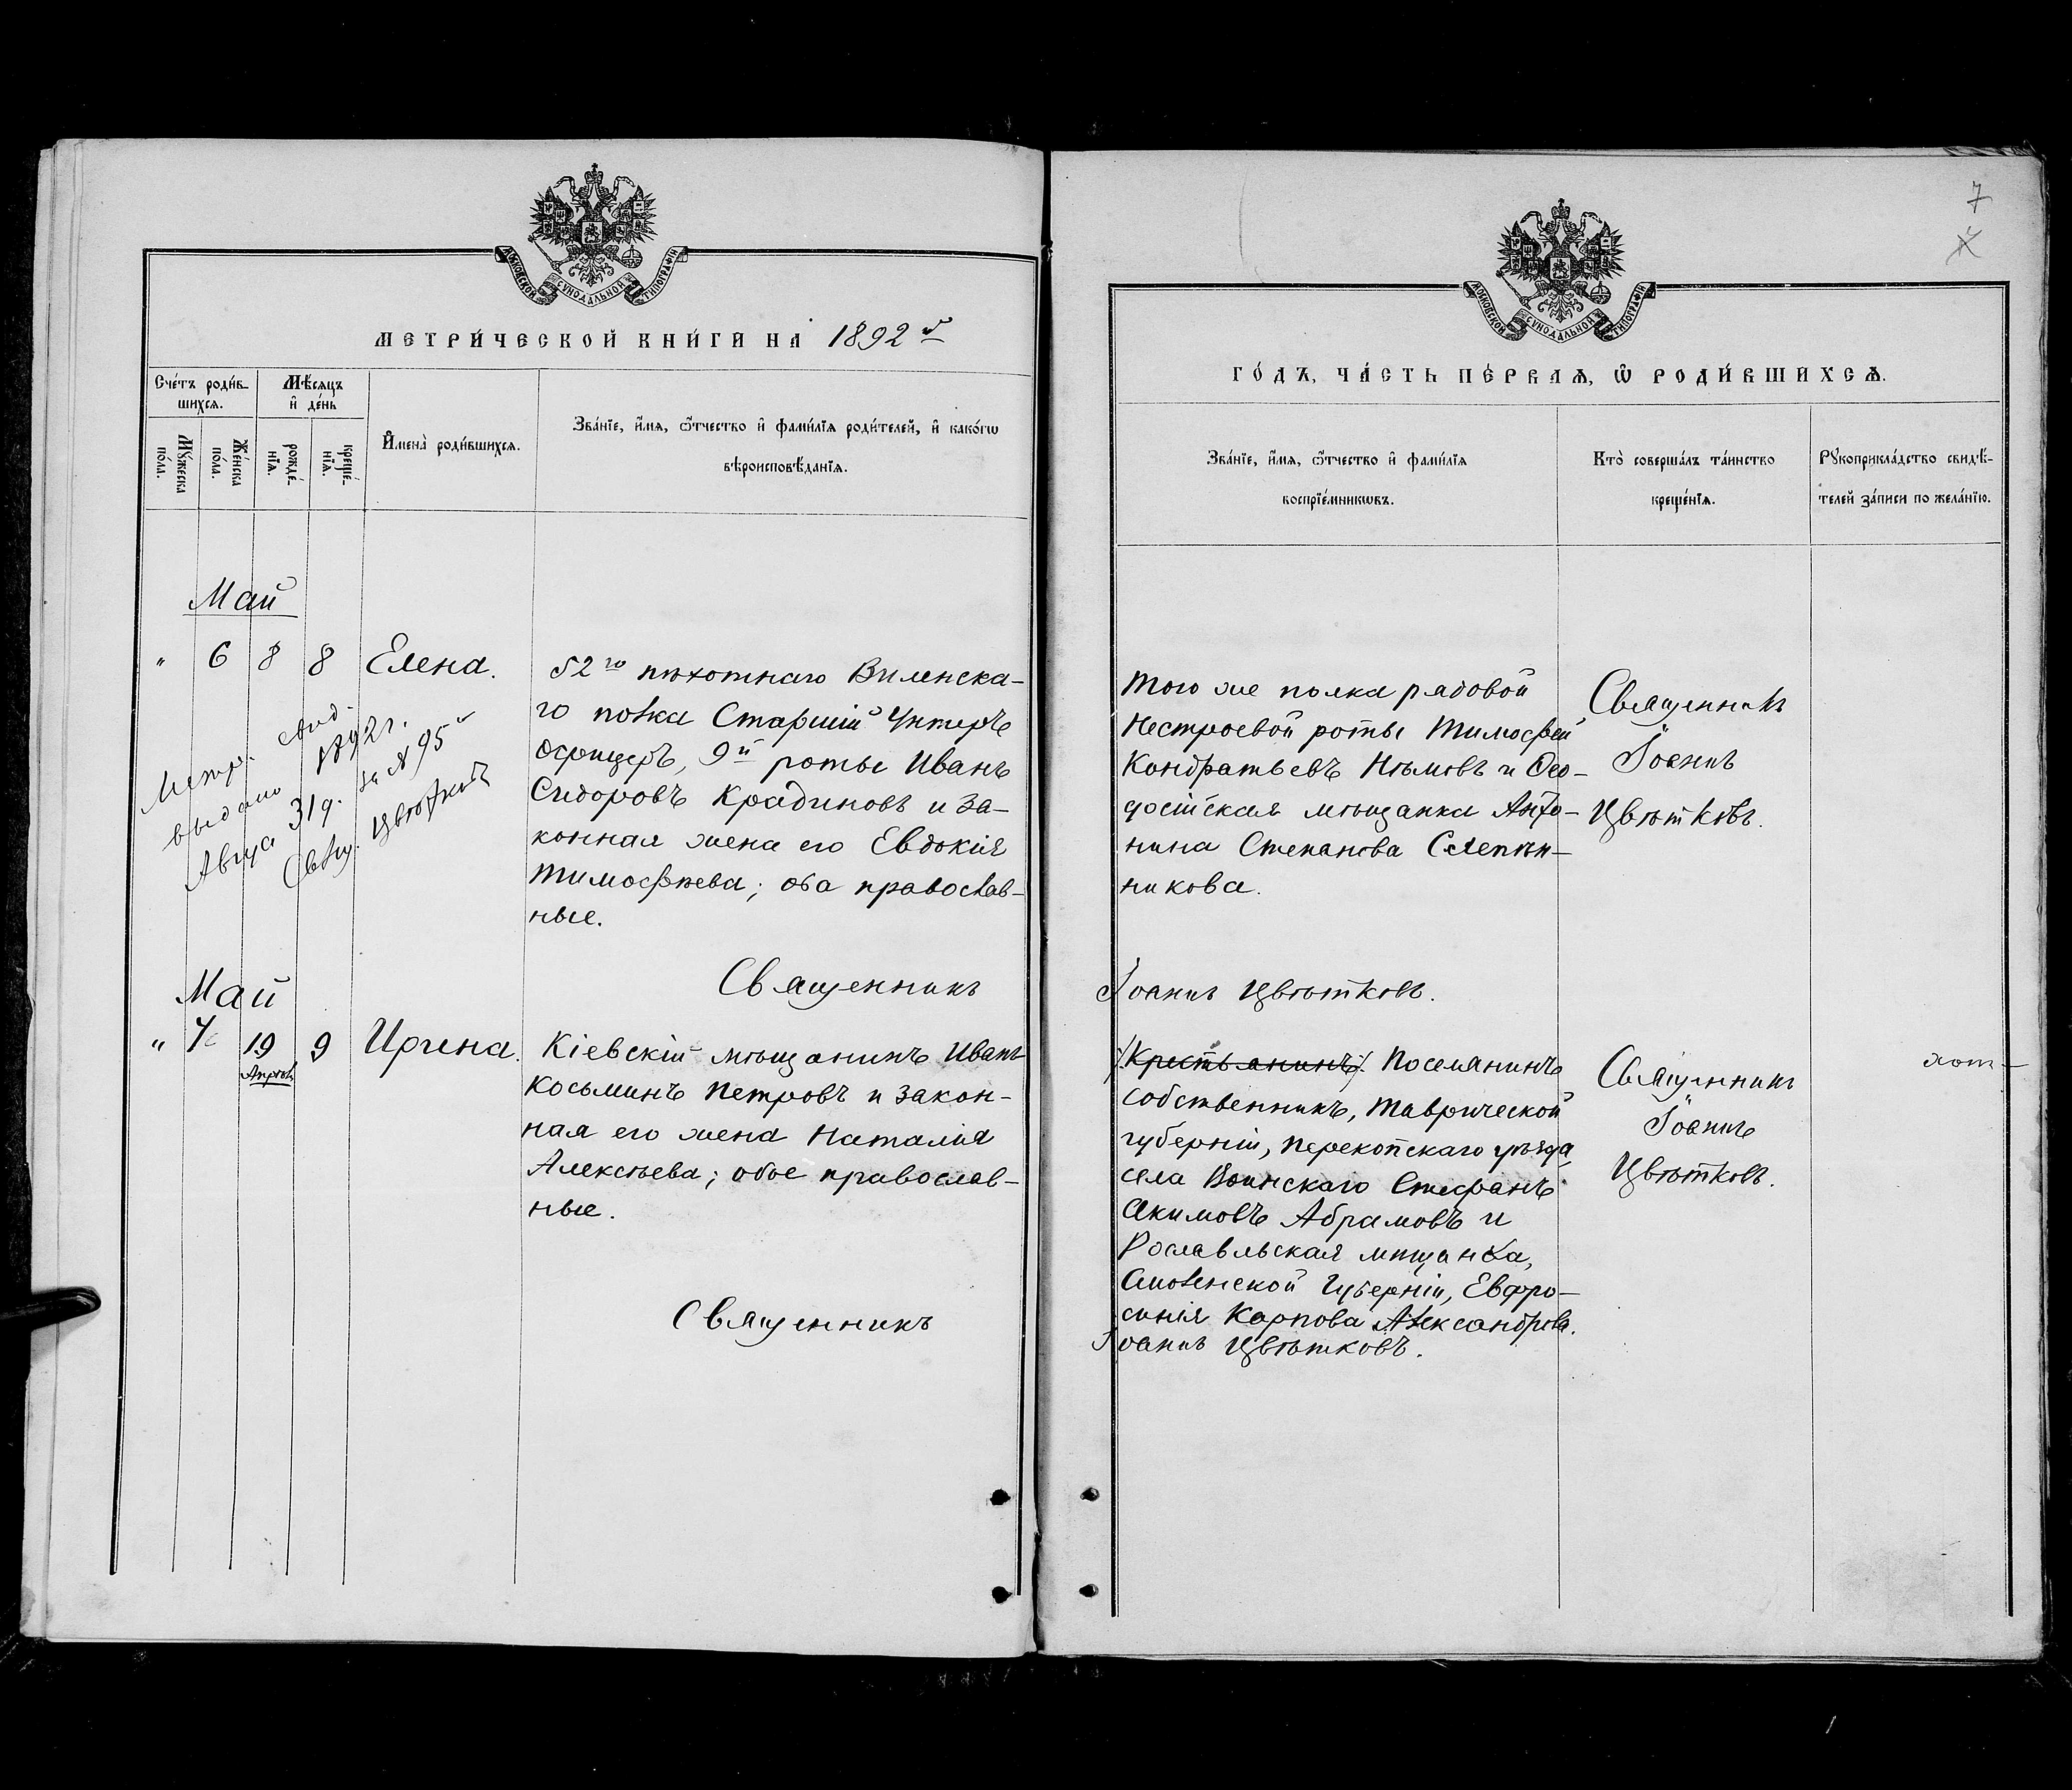 МОСКОВСКОЙ СѴНОДАЛЬНОЙ ТИПОГРАФІИ
МЕТРИ́ЧЕСКОЙ КНИ́ГИ НА 1892й
Сче́тъ роди́в-
шихсѧ.
Мѣ́сѧцъ
и҆ де́нь
Мꙋ́жеска
по́ла.
Же́нска
по́ла.
рожде́-
нїѧ.
креще́-
нїѧ.
И҆мена̀ роди́вшихсѧ.
Зва́нїе, и҆́мѧ, ѻ҆́тчество и҆ фами́лїѧ роди́телей, и҆ како́гѡ
вѣроисповѣ́данїѧ.
Май
" 6 8 8 Елена.
52го пѣхотнаго Виленска-
го полка Старшій Унтеръ
Офицеръ, 9й роты Иванъ
Сидоровъ Крадиновъ и за-
конная жена его Евдокія
Тимофѣева; оба православ-
ные.
Метр. свид.
выдано 1892 г.
Авгуса 31 д. за № 95й
Свящ. Цвѣтковъ
Священникъ
Май
" 7 19 9 Ирина.
Апрѣль
Кіевскій мѣщанинъ Иванъ
Косьминъ Петровъ и закон-
ная его жена Наталія
Алексѣева; обое православ-
ные.
Священникъ
7
МОСКОВСКОЙ СѴНОДАЛЬНОЙ ТИПОГРАФІИ
ГО́ДЪ, ЧА́СТЬ ПЕ́РВАѦ, Ѽ РОДИ́ВШИХСѦ.
Зва́нїе, и҆́мѧ, ѻ҆́тчество и҆ фами́лїѧ
воспрїе́мникѡвъ.
Кто̀ соверша́лъ та́инство
креще́нїѧ.
Рꙋкоприкла́дство свидѣ́-
телей за́писи по жела́нїю.
Того же полка рядовой
Нестроевой роты Тимофей
Кондратьевъ Нѣмовъ и Ѳео-
досійская мѣщанка Анто-
нина Степанова Слепин-
никова.
Священникъ
Іоаннъ
Цвѣтковъ.
Іоаннъ Цвѣтковъ.
Крестьянинъ Поселянинъ
собственникъ, Таврической
губерніи, Перекопскаго уѣзда,
села Воинскаго Стефанъ
Акимовъ Абрамовъ и
Рославльская мѣщанка,
Смоленской Губерніи, Евфро-
синія Карпова Александрова.
Іоаннъ Цвѣтковъ.
Священникъ
Іоаннъ
Цвѣтковъ.